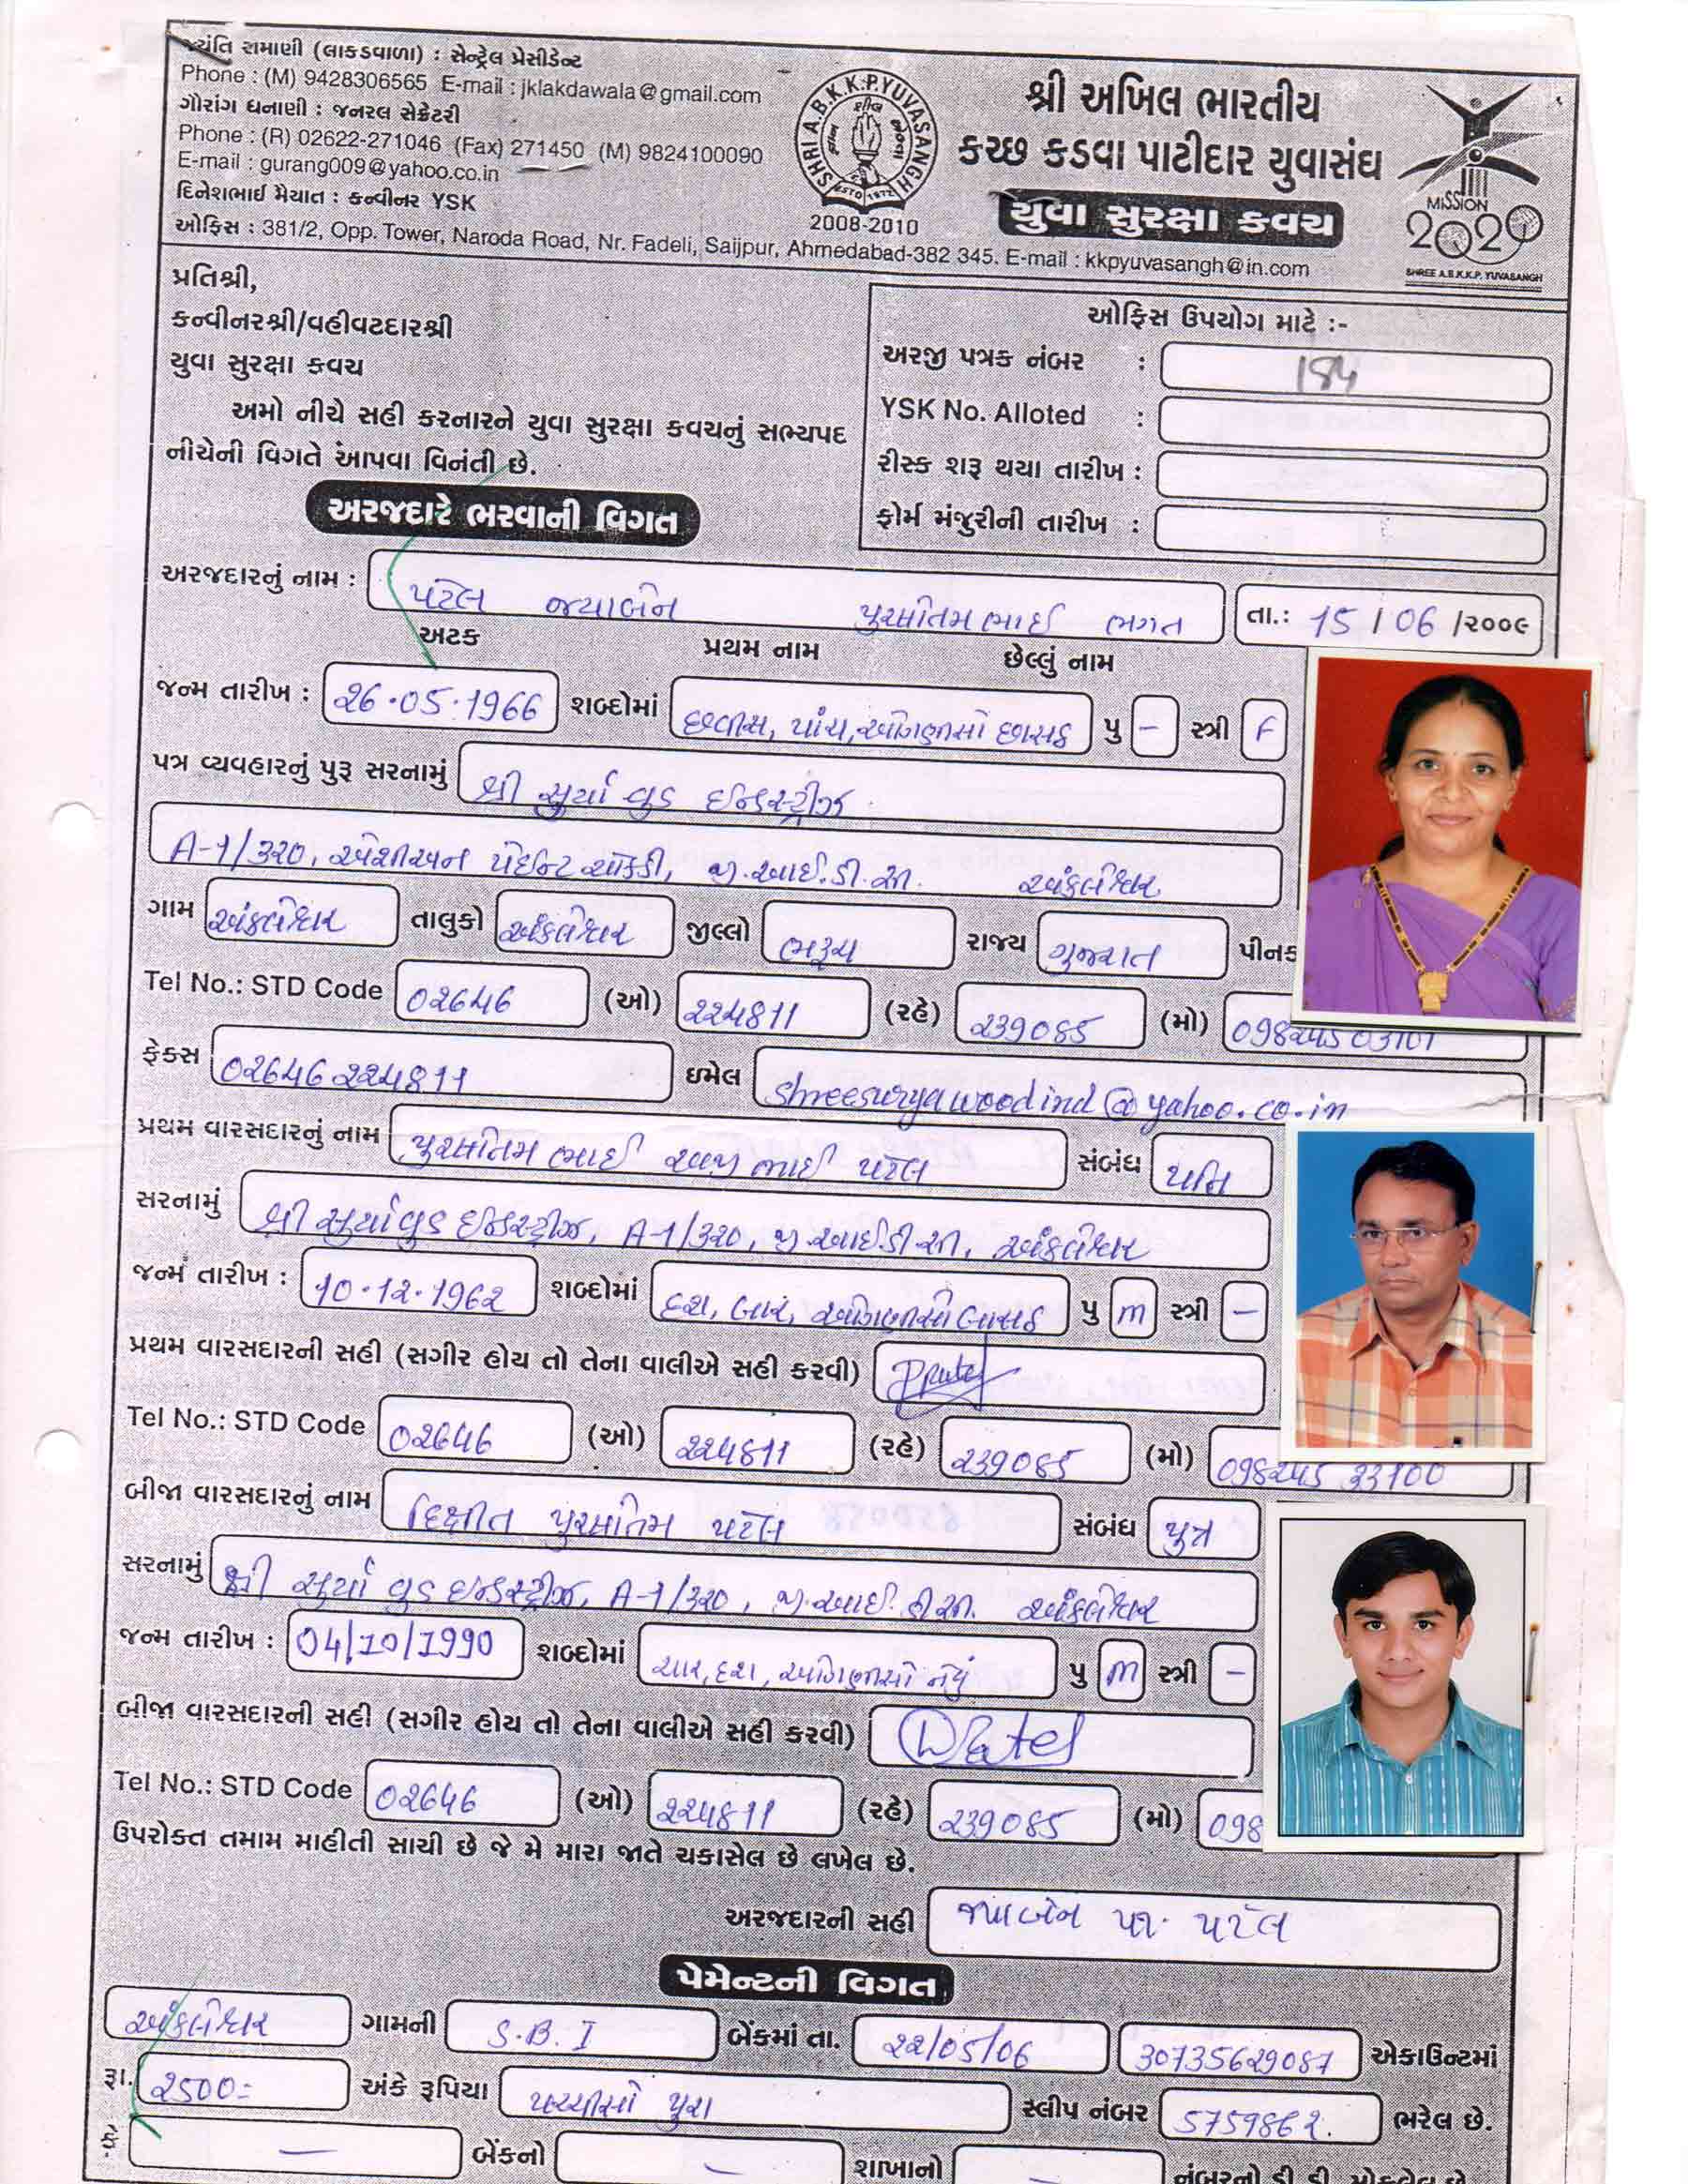 જયંતિ રામાણી (લાકડવાળા) : સેન્ટ્રેલ પ્રેસીડેન્ટ
Phone : (M) 9428306565 E-mail : jklakdawala@gmail.com
ગોરાંગ ધનાણી : જનરલ સેક્રેટરી
Phone : (R) 02622-271046 (Fax) 271450 (M) 9824100090
E-mail : gurang009@yahoo.co.in
દિનેશભાઈ મૈયાત : કન્વીનર YSK
ઓફિસ : 381/2, Opp. Tower, Naroda Road, Nr. Fadeli, Saijpur, Ahmedabad-382 345. E-mail : kkpyuvasangh@in.com
SHRI A.B.K.K.P. YUVASANGH
ESTD 1972
2008-2010
શ્રી અખિલ ભારતીય
કચ્છ કડવા પાટીદાર યુવાસંઘ
યુવા સુરક્ષા કવચ
MISSION
2020
SHREE A.B.K.K.P. YUVASANGH
પ્રતિશ્રી,
કન્વીનરશ્રી/વહીવટદારશ્રી
યુવા સુરક્ષા કવચ
અમો નીચે સહી કરનારને યુવા સુરક્ષા કવચનું સભ્યપદ
નીચેની વિગતે આપવા વિનંતી છે.
ઓફિસ ઉપયોગ માટે :-
અરજી પત્રક નંબર : 184
YSK No. Alloted :
રીસ્ક શરૂ થયા તારીખ :
ફોર્મ મંજુરીની તારીખ :
અરજદારે ભરવાની વિગત
અરજદારનું નામ : પટેલ જયાબેન પુરસોતમભાઈ ભગત તા.: 15 / 06 /૨૦૦૯
અટક પ્રથમ નામ છેલ્લું નામ
જન્મ તારીખ : 26.05.1966 શબ્દોમાં છવીસ, પાંચ, ઓગણીસો છાસઠ પુ - સ્ત્રી F
પત્ર વ્યવહારનું પુરૂ સરનામું શ્રી સુર્યા વુડ ઈન્ડસ્ટ્રીઝ
A-1/320, એશીયન પેઈન્ટ ચોકડી, જી.આઈ.ડી.સી. અંકલેશ્વર
ગામ અંકલેશ્વર તાલુકો અંકલેશ્વર જીલ્લો ભરૂચ રાજ્ય ગુજરાત પીનક
Tel No.: STD Code 02646 (ઓ) 224811 (રહે) 239085 (મો) 09824503101
ફેક્સ 02646 224811 ઇમેલ shreesuryawoodind@yahoo.co.in
પ્રથમ વારસદારનું નામ પુરસોતમભાઈ પટેલ સંબંધ પતિ
સરનામું શ્રી સુર્યા વુડ ઈન્ડસ્ટ્રીઝ, A-1/320, જી.આઈ.ડી.સી, અંકલેશ્વર
જન્મ તારીખ : 10.12.1962 શબ્દોમાં દશ, બાર, ઓગણીસો બાસઠ પુ m સ્ત્રી -
પ્રથમ વારસદારની સહી (સગીર હોય તો તેના વાલીએ સહી કરવી) PPatel
Tel No.: STD Code 02646 (ઓ) 224811 (રહે) 239085 (મો) 098245 33100
બીજા વારસદારનું નામ દિક્ષીત પુરસોતમ પટેલ સંબંધ પુત્ર
સરનામું શ્રી સુર્યા વુડ ઈન્ડસ્ટ્રીઝ, A-1/320, જી.આઈ.ડી.સી. અંકલેશ્વર
જન્મ તારીખ : 04/10/1990 શબ્દોમાં ચાર, દશ, ઓગણીસો નેવું પુ m સ્ત્રી -
બીજા વારસદારની સહી (સગીર હોય તો તેના વાલીએ સહી કરવી) DPatel
Tel No.: STD Code 02646 (ઓ) 224811 (રહે) 239085 (મો) 098
ઉપરોક્ત તમામ માહીતી સાચી છે જે મે મારા જાતે ચકાસેલ છે લખેલ છે.
અરજદારની સહી જયાબેન પી. પટેલ
પેમેન્ટની વિગત
અંકલેશ્વર ગામની S.B.I બેંકમાં તા. 22/05/06 30735629087 એકાઉન્ટમાં
રૂા. 2500= અંકે રૂપિયા પચ્ચીસો પુરા સ્લીપ નંબર 5759862. ભરેલ છે.
- બેંકનો - શાખાનો - નંબરનો ડી.ડી. મોકલેલ છે